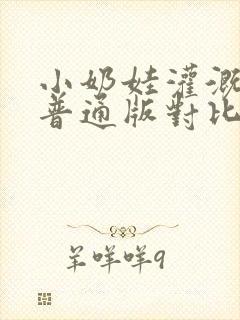 小奶娃灌溉
普通版對比
羊咩咩9